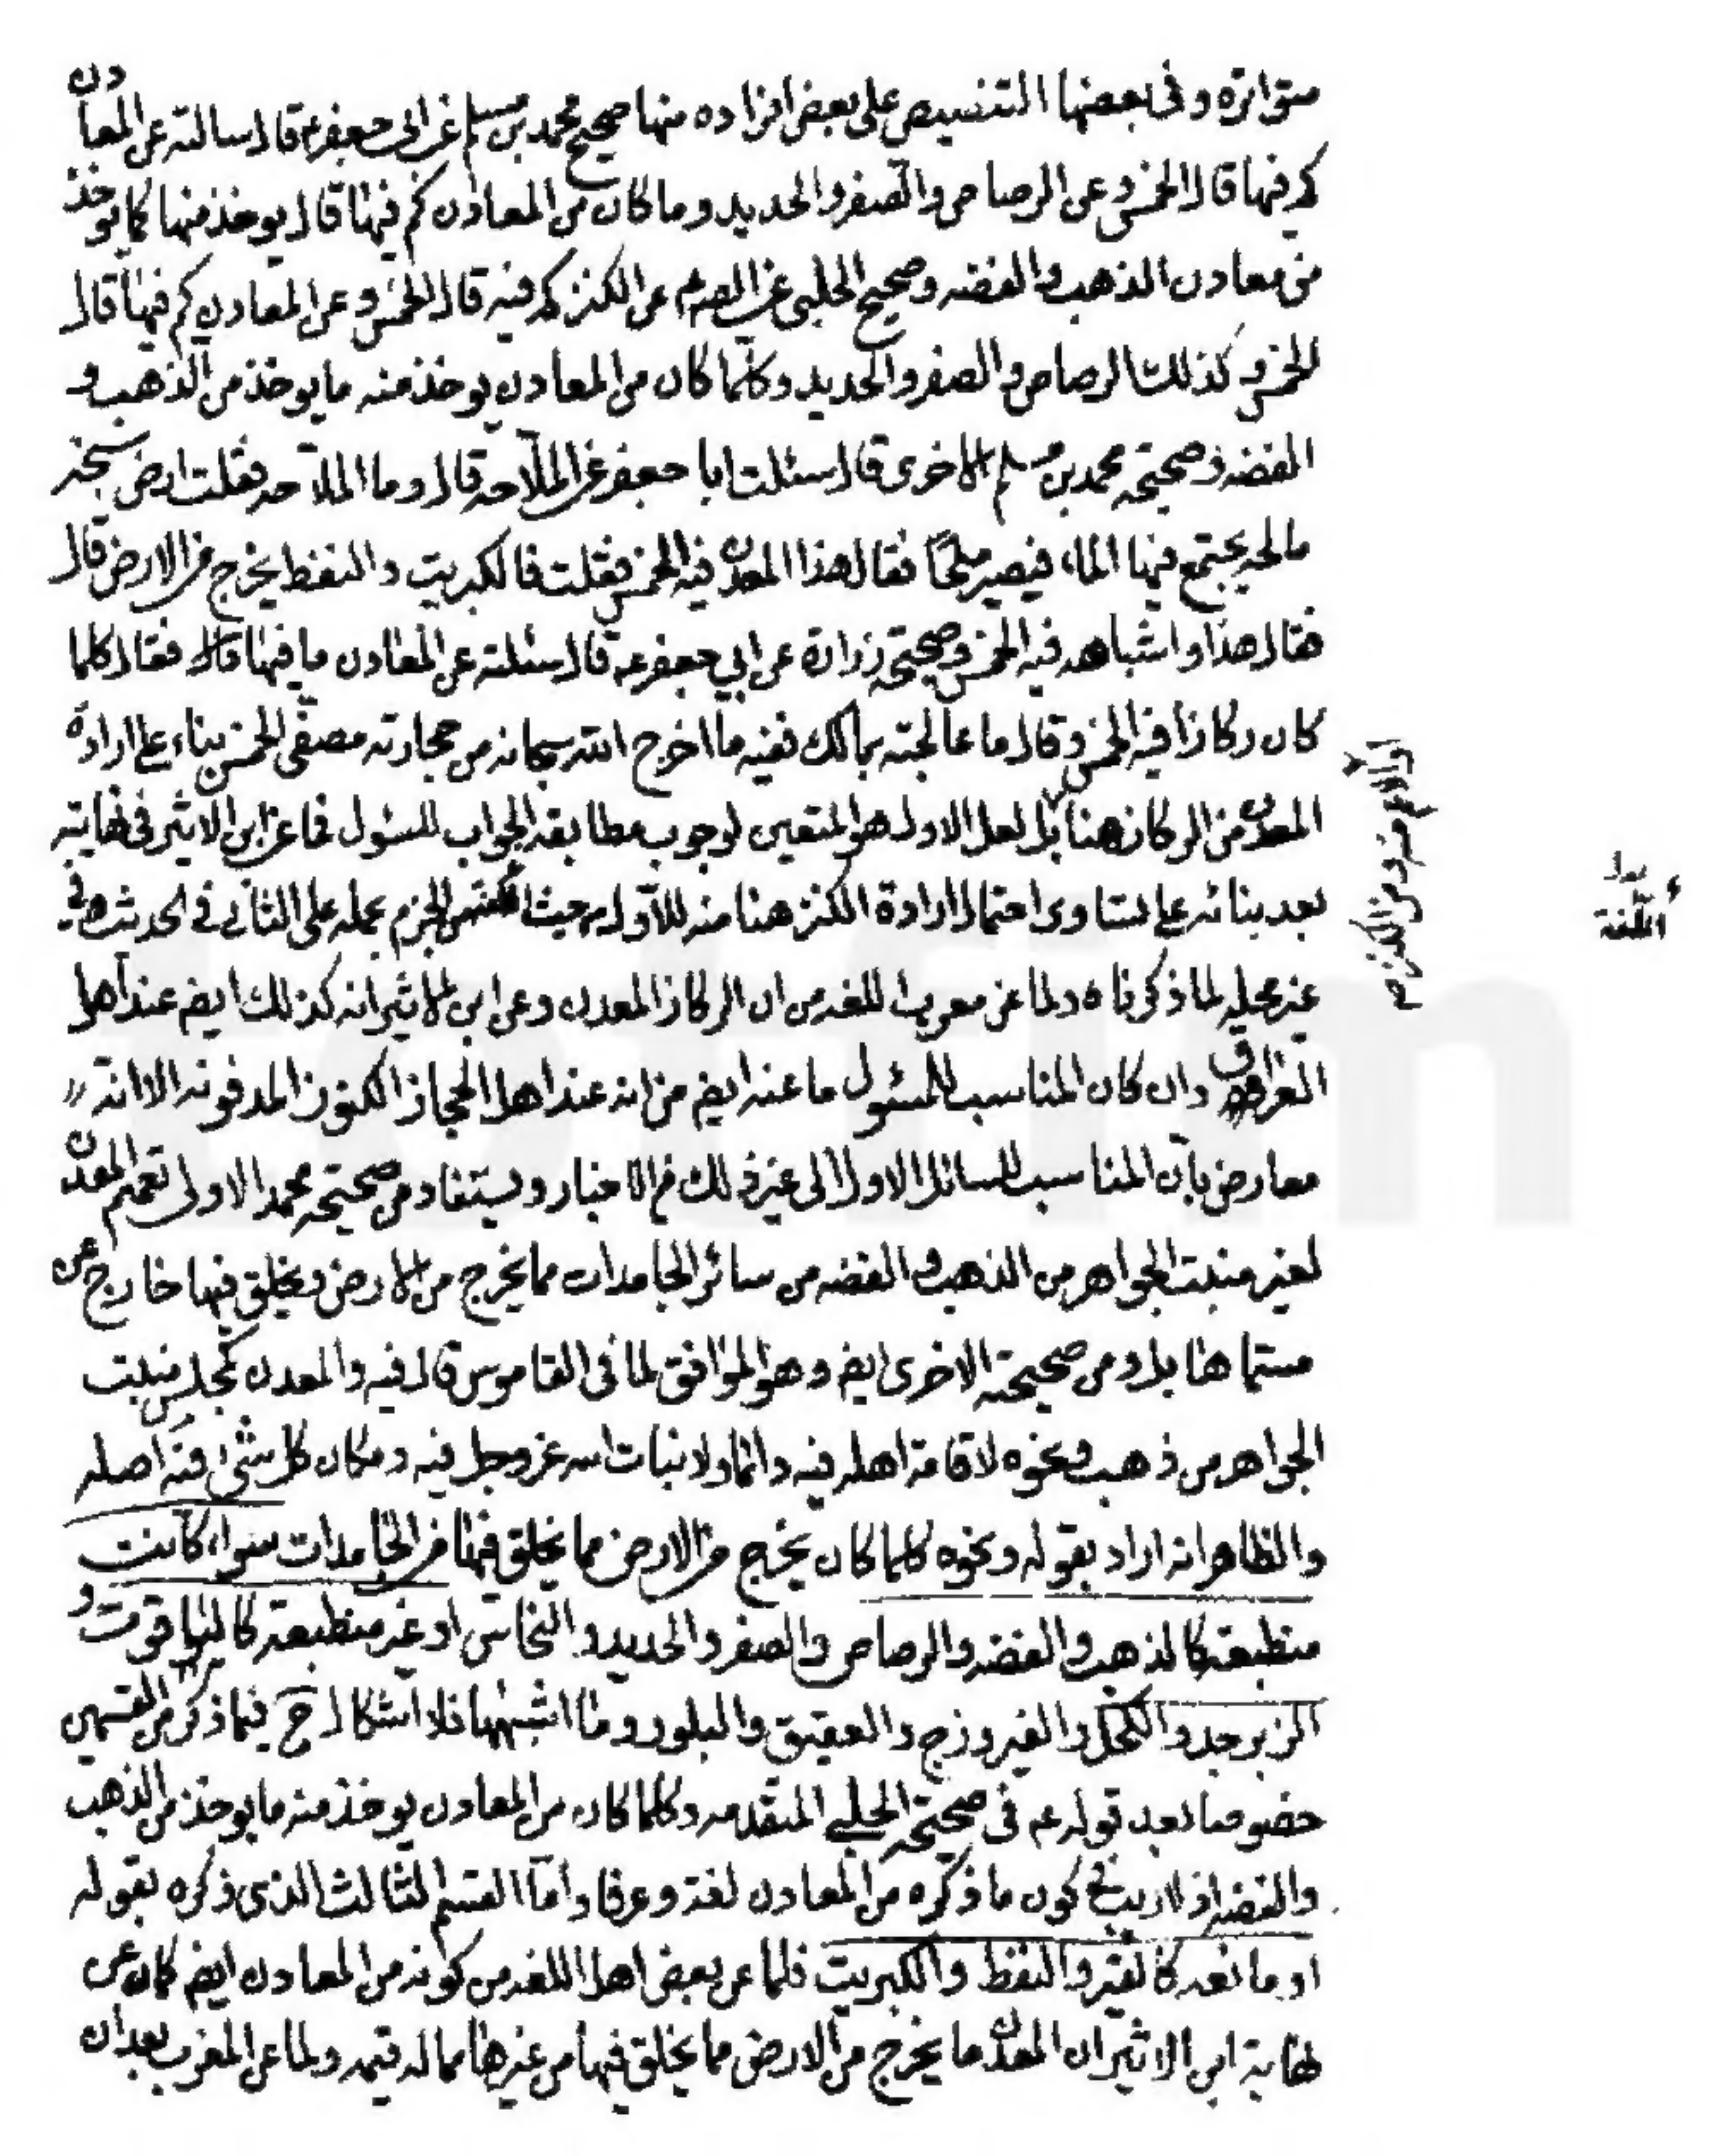 متواتره وفى بعضها التنصيص على بعض افراده منها صحيح محمد بن مسلم عن ابى جعفر ع قال سالته عن المعادن
كم فيها قال الخمس وعن الرصاص والصفر والحديد وما كان من المعادن كم فيها قال يوخذ منها كما يوخذ
من معادن الذهب والفضه وصحيح الحلبى عن الص ع عن الكنز كم فيه قال الخمس وعن المعادن كم فيها قال
الخمس وكذلك الرصاص والصفر والحديد وكلما كان من المعادن يوخذ منه ما يوخذ من الذهب و
الفضه وصحيحه محمد بن مسلم الاخرى قال سئلت ابا جعفر عن الملاحه قال وما الملاحه فقلت ارض سبخه
مالحه يجتمع فيها الماء فيصير ملحا فقال هذا المعدن فيه الخمس فقلت فالكبريت والنفط يخرج من الارض قال
فقال هذا واشباهه فيه الخمس وصحيحه زرارة عن ابي جعفر ع قال سئلته عن المعادن ما فيها فقال كلما
كان ركازا فيه الخمس وقال ما عالجته بمالك ففيه ما اخرج الله سبحانه من حجارته مصفى الخمس بناء على ارادة
المعدن من الركاز هنا بل لعل الاول هو المتعين لوجوب مطابقه الجواب للسئول فما عن ابن الاثير فى نهايته
بعد بنائه على تساوى احتمال ارادة الكنز هنا منه للاول من حيث الجزم بحمله على الثانى فى الحديث فى
غير محله لما ذكرناه ولما عن مغرب اللغه من ان الركاز المعدن وعن ابن الاثير انه كذلك ايضم عند اهل
العراق وان كان المناسب للمسئول ما عنه ايضم من انه عند اهل الحجاز الكنوز المدفونه الا انه
معارض بان المناسب للسائل الاول الى غير ذلك من الاخبار ويستفاد من صحيحه محمد الاولى تعميم المعدن
لغير منبت الجواهر من الذهب والفضه من سائر الجامدات مما يخرج من الارض ويخلق فيها خارج عن
مسماها بل ومن صحيحته الاخرى ايضم وهو الموافق لما فى القاموس قال فيه والمعدن كمجلس منبت
الجواهر من ذهب ونحوه لاقامة اهله فيه دائما ولانبات الله عز وجل فيه ومكان كل شئ فيه اصله
والظاهر انه اراد بقوله ونحوه كلما كان يخرج من الارض مما يخلق فيها من الجامدات سواء كانت
منطبعة كالذهب والفضه والرصاص والصفر والحديد والنحاس او غير منطبعة كالياقوت و
الزبرجد والكحل والفيروزج والعقيق والبلور وما اشبهها فلا اشكال ح فيما ذكر من القسمين
خصوصا بعد قوله عم فى صحيحة الحلبي المتقدمه وكلما كان من المعادن يوخذ منه ما يوخذ من الذهب
والفضه اذ لاريب فى كون ما ذكره من المعادن لغة وعرفا واما القسم الثالث الذى ذكره بقوله
او مائعه كالقير والنفط والكبريت فلما عن بعض اهل اللغه من كونه من المعادن ايضم كان عن
نهاية ابن الاثير ان المعدن ما يخرج من الارض مما يخلق فيها من غيرها مما له قيمه ولما عن المغرب بعد ان
من الكنز
اللغة